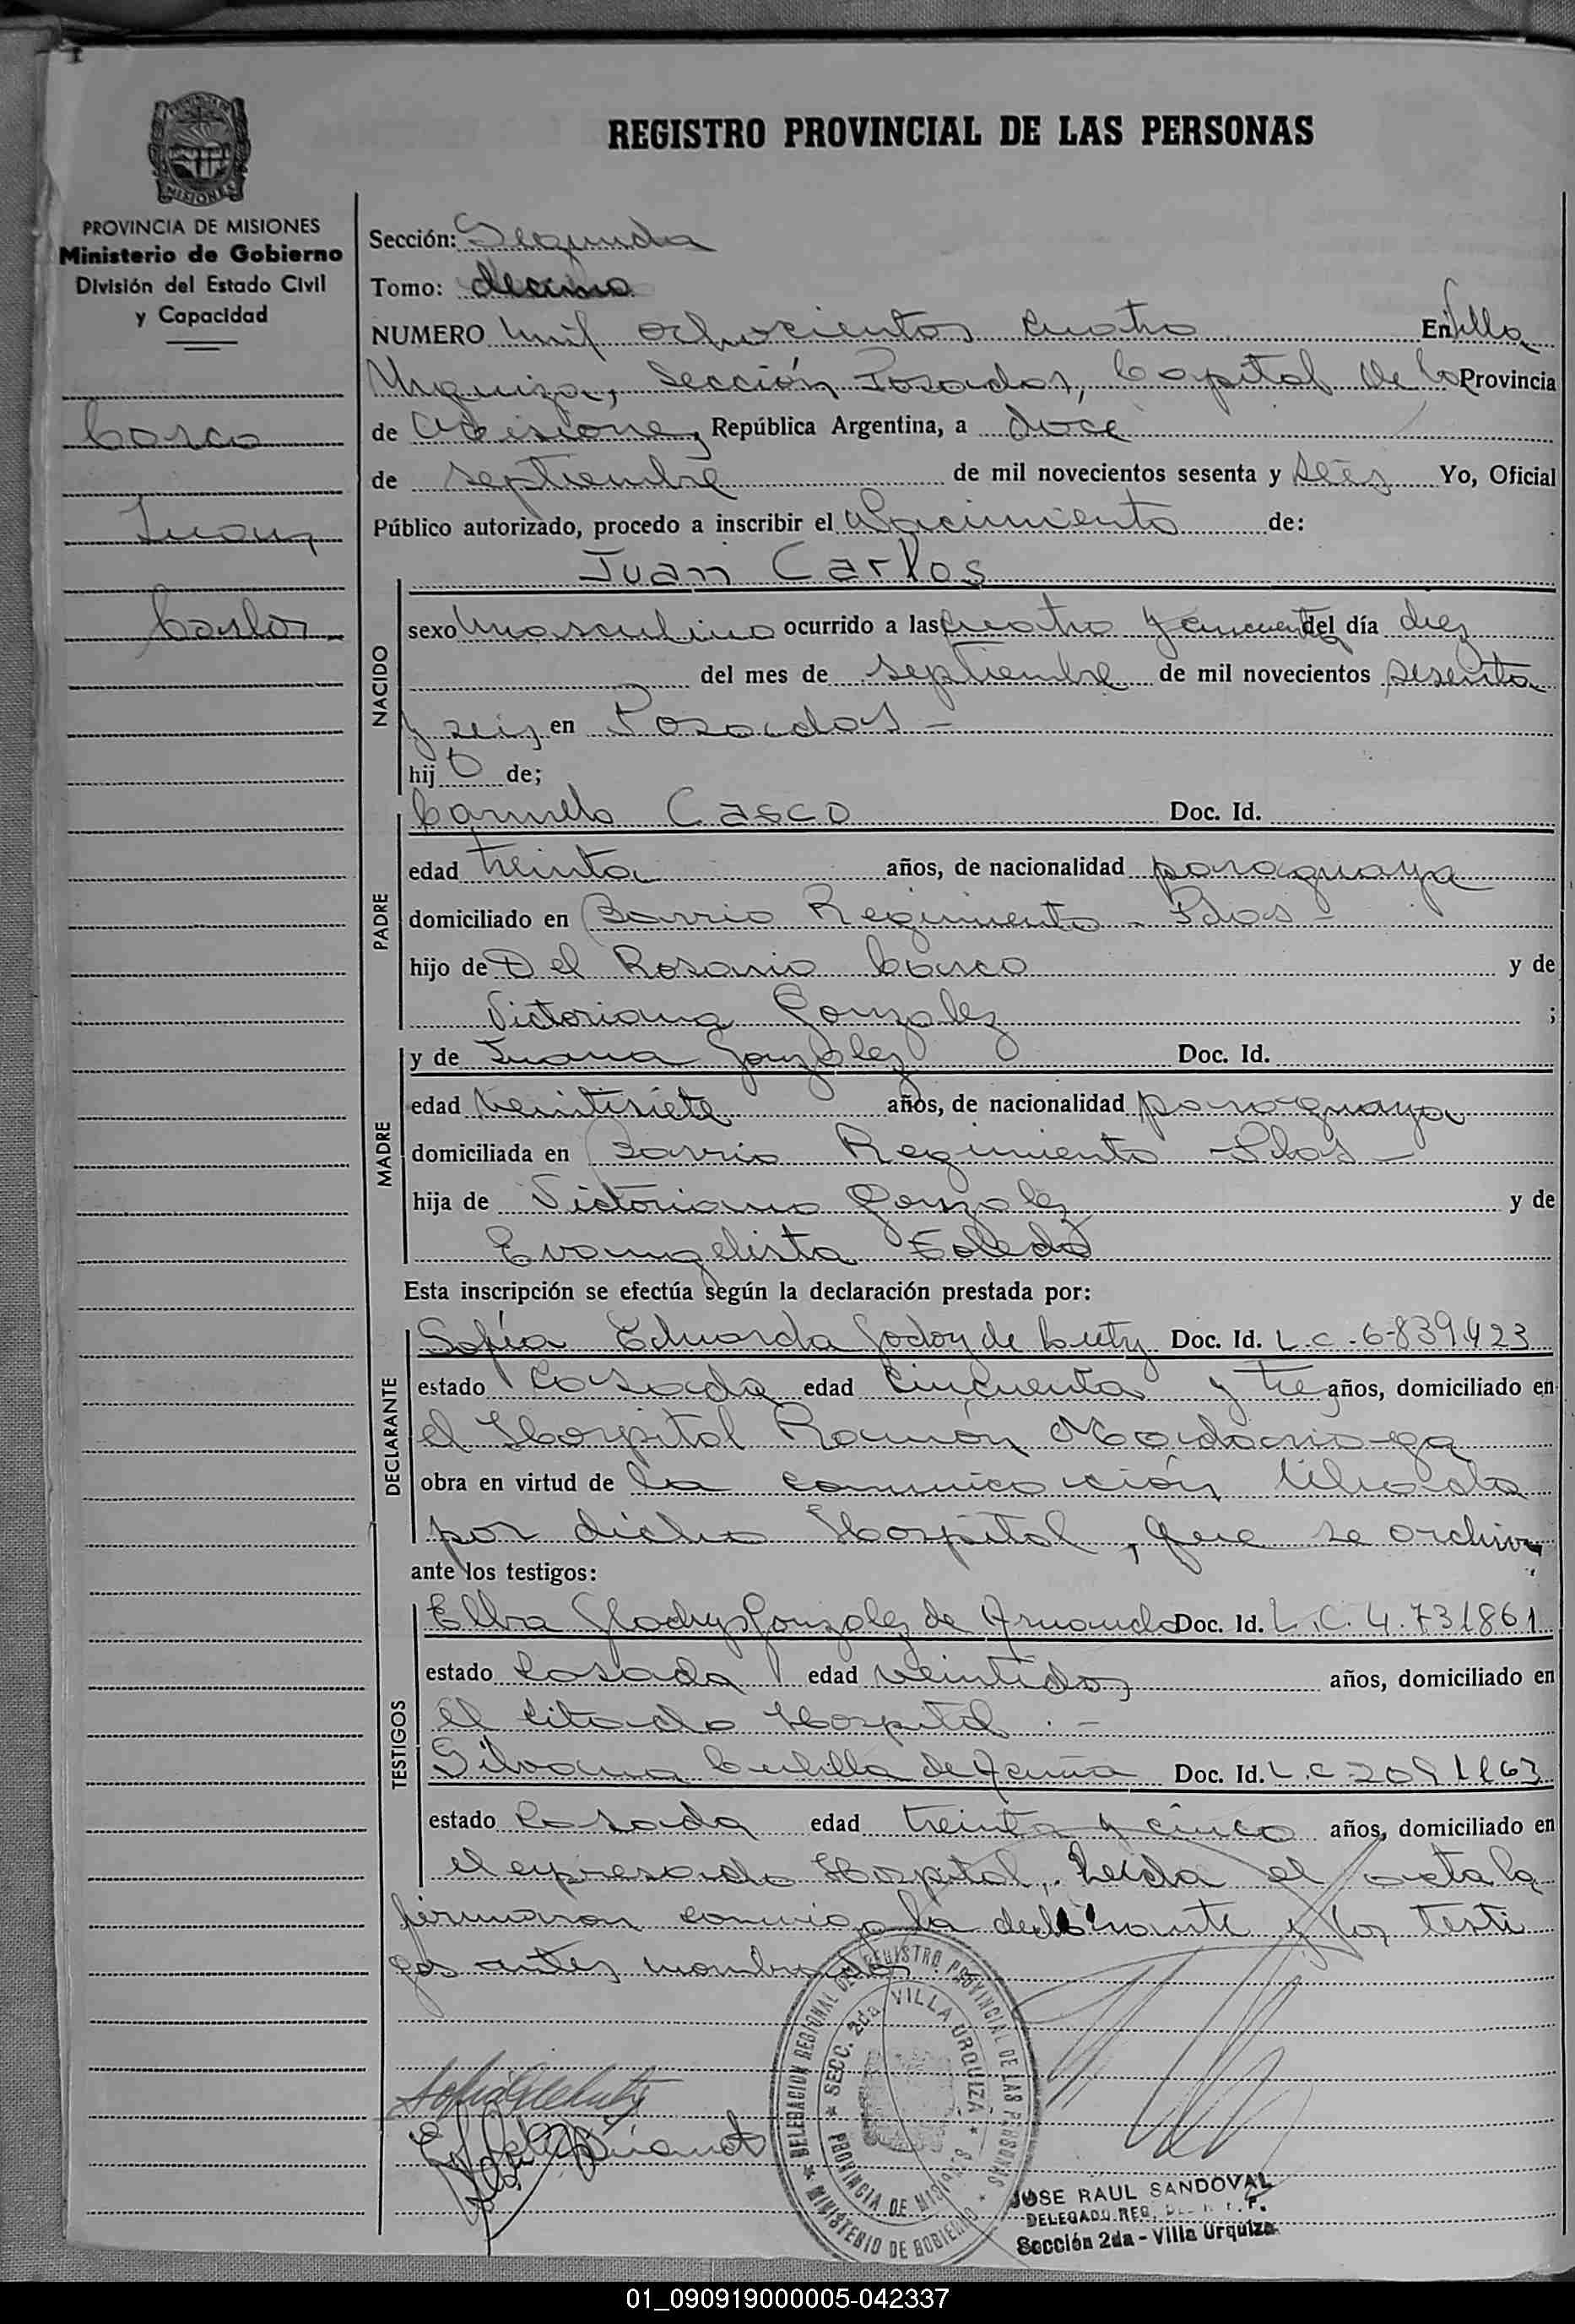 REGISTRO PROVINCIAL DE LAS PERSONAS
MISIONES
PROVINCIA DE MISIONES
Ministerio de Gobierno
División del Estado Civil
y Capacidad
Casco
Juan
Carlos
Sección: Segunda
Tomo: decimo
NUMERO mil ochocientos cuatro En Villa
Urquiza, Sección Posadas, Capital de la Provincia
de Misiones República Argentina, a doce
de septiembre de mil novecientos sesenta y seis Yo, Oficial
Público autorizado, procedo a inscribir el Nacimiento de:
Juan Carlos
NACIDO
sexo masculino ocurrido a las cuatro y cincuenta del día diez
del mes de septiembre de mil novecientos sesenta
y seis en Posadas -
hijo de;
PADRE
Carmelo Casco Doc. Id.
edad treinta años, de nacionalidad paraguaya
domiciliado en Barrio Regimiento - Pdas -
hijo de Del Rosario Casco y de
Victoriana Gonzalez ;
MADRE
y de Juana Gonzalez Doc. Id.
edad veintisiete años, de nacionalidad paraguaya
domiciliada en Barrio Regimiento - Pdas -
hija de Victoriano Gonzalez y de
Evangelista Toledo
Esta inscripción se efectúa según la declaración prestada por:
DECLARANTE
Sofía Eduarda Godoy de Doc. Id. L.C. 6-839.423
estado Casada edad cincuenta y tres años, domiciliado en
el Hospital Ramón Madariaga
obra en virtud de la comunicación librada
por dicho Hospital, que se archiva
ante los testigos:
TESTIGOS
Elba Gladys Gonzalez de Doc. Id. L.C. 4.731861
estado Casada edad veintidos años, domiciliado en
el citado Hospital . -
Silvana de Acuña Doc. Id. L.C
estado Casada edad treinta y cinco años, domiciliado en
el expresado Hospital, Leída el acta la
firmaron conmigo la declarante y los testi
gos antes nombrados
DELEGACION REGIONAL DEL REGISTRO PROVINCIAL DE LAS PERSONAS
SECC. 2da VILLA URQUIZA
PROVINCIA DE MISIONES
MINISTERIO DE GOBIERNO
JOSE RAUL SANDOVAL
DELEGADO REG.
Sección 2da - Villa Urquiza
01_090919000005-042337